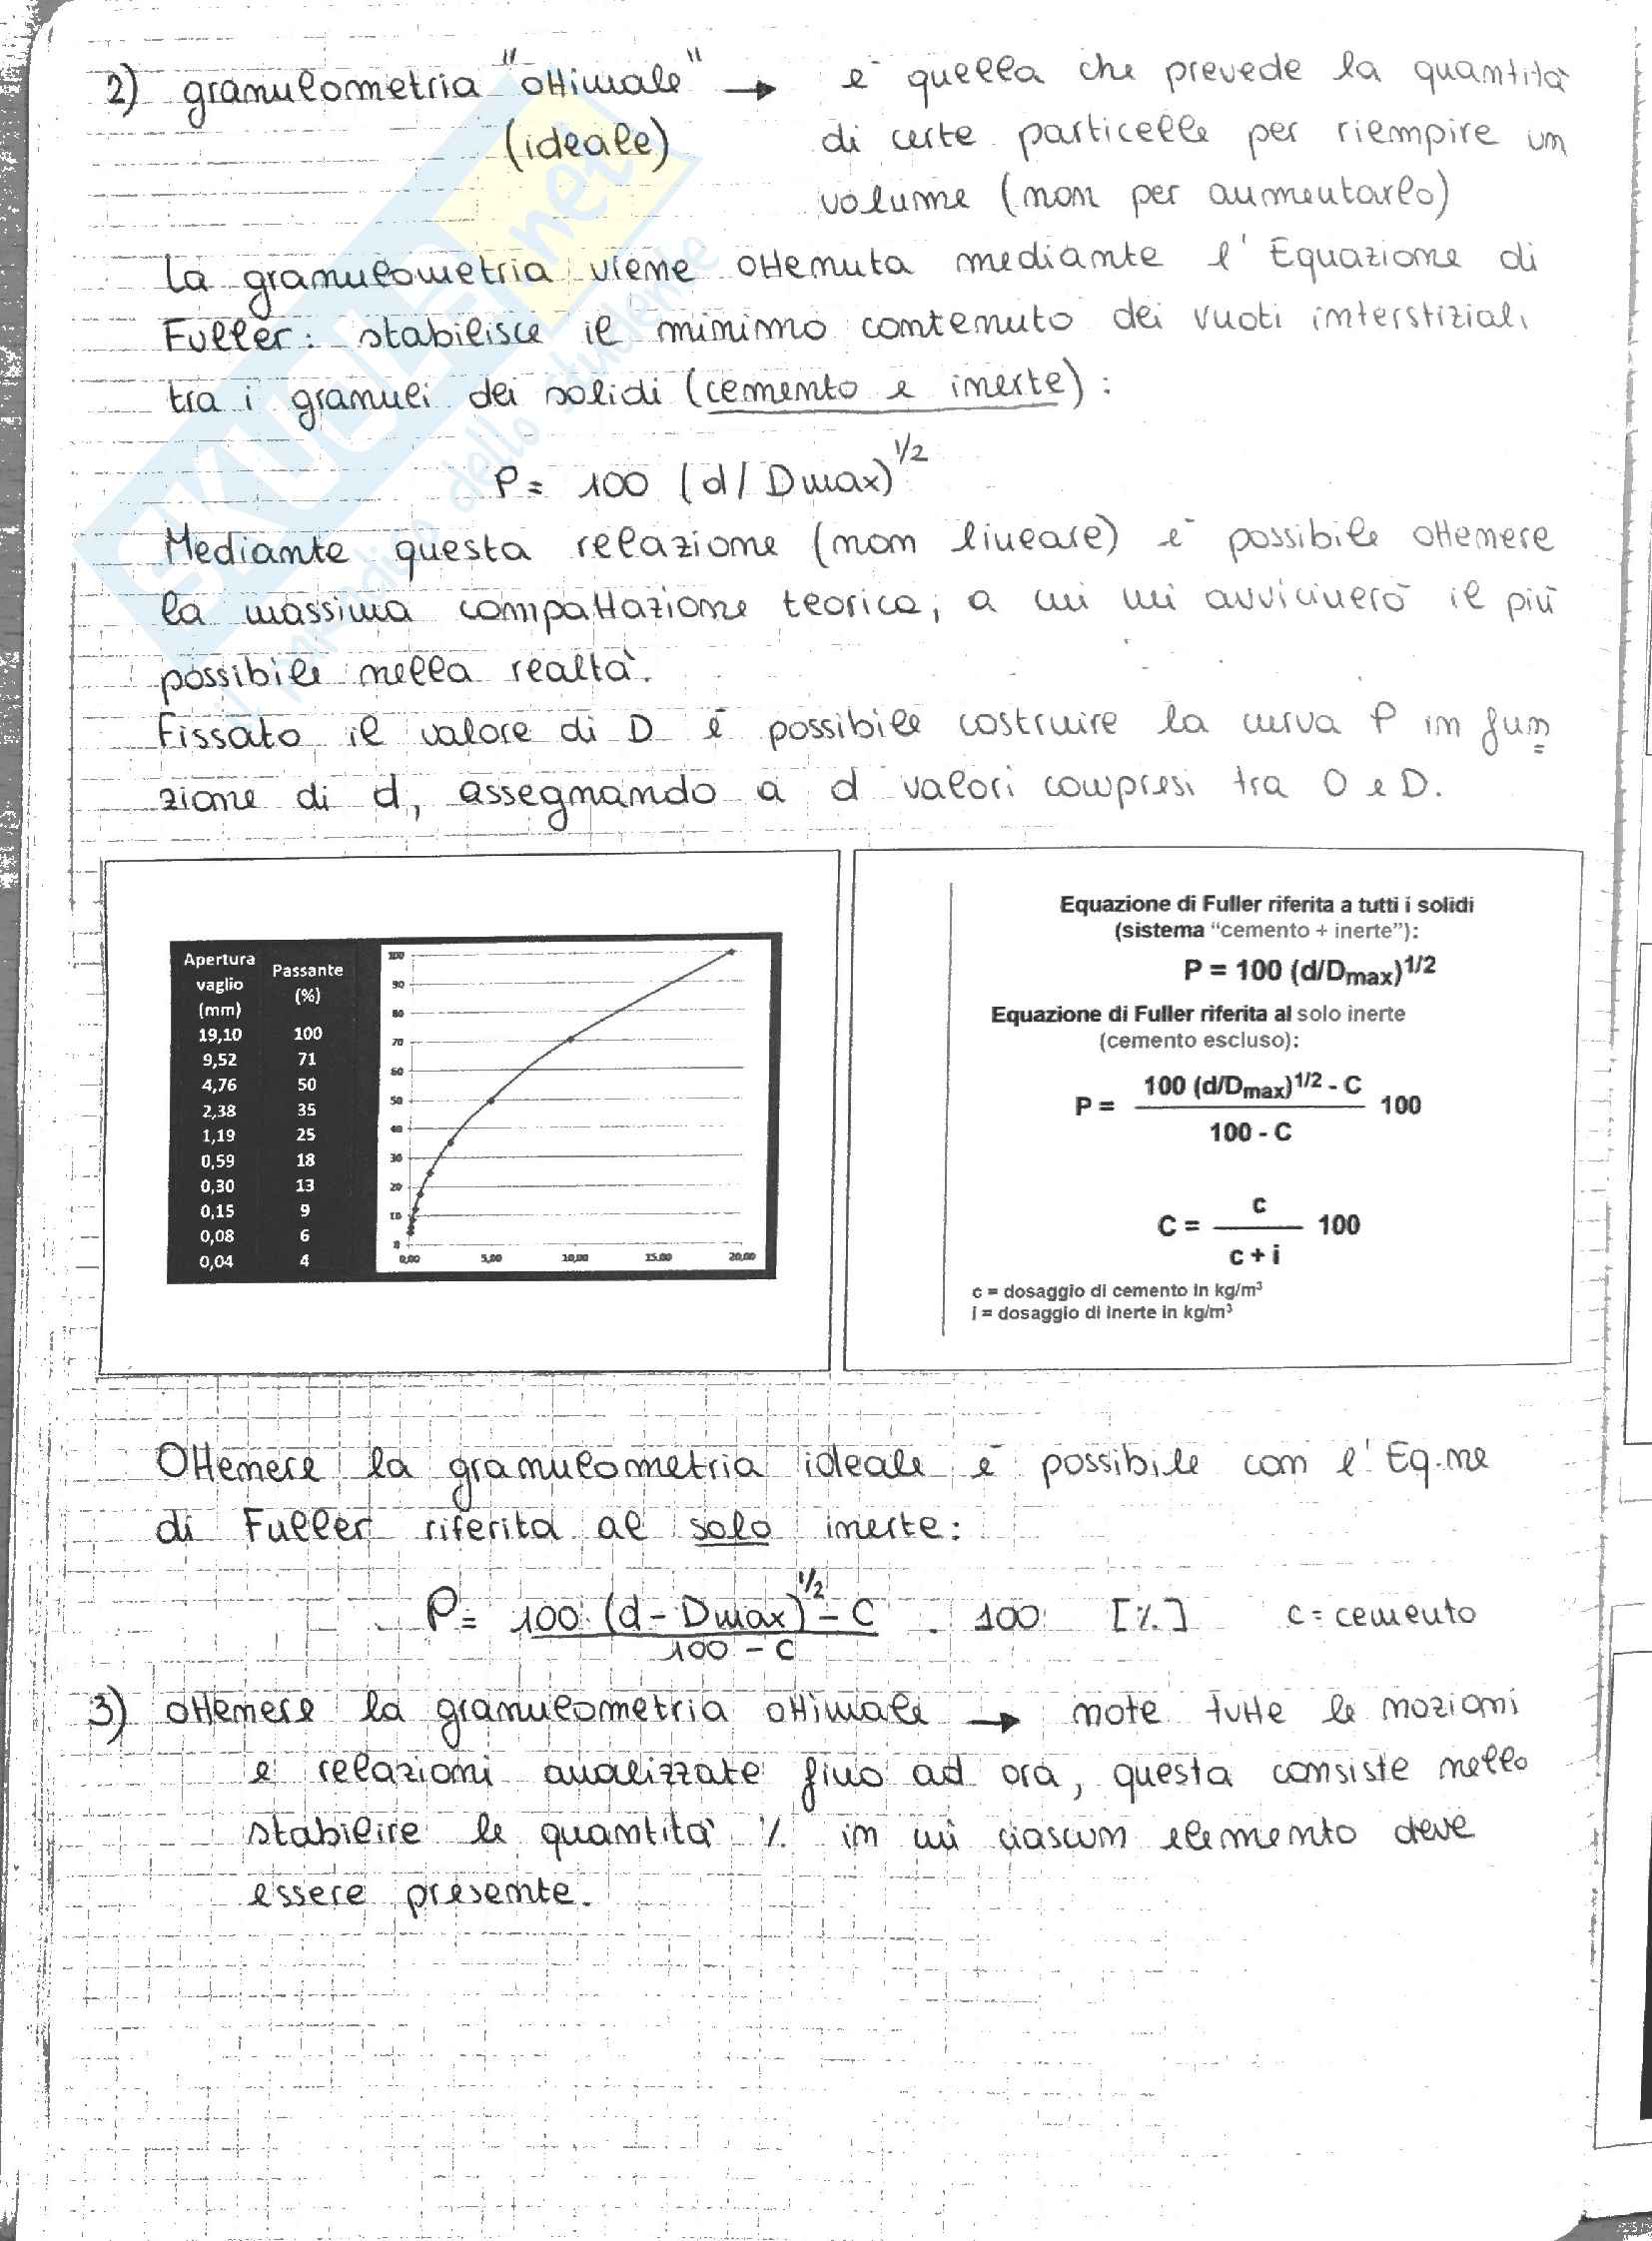 2) granulometria "ottimale" → è quella che prevede la quantità
(ideale) di certe particelle per riempire un
volume (non per aumentarlo)
La granulometria viene ottenuta mediante l'Equazione di
Fuller: stabilisce il minimo contenuto dei vuoti interstiziali
tra i granuli dei solidi (cemento e inerte):
P = 100 (d/Dmax)^1/2
Mediante questa relazione (non lineare) è possibile ottenere
la massima compattazione teorica, a cui mi avvicinerò il più
possibile nella realtà.
Fissato il valore di D è possibile costruire la curva P in fun=
zione di d, assegnando a d valori compresi tra 0 e D.
Apertura vaglio (mm) Passante (%)
19,10 100
9,52 71
4,76 50
2,38 35
1,19 25
0,59 18
0,30 13
0,15 9
0,08 6
0,04 4
100
90
80
70
60
50
40
30
20
10
0
0,00 5,00 10,00 15,00 20,00
Equazione di Fuller riferita a tutti i solidi
(sistema "cemento + inerte"):
P = 100 (d/Dmax)^1/2
Equazione di Fuller riferita al solo inerte
(cemento escluso):
P = 100 (d/Dmax)^1/2 - C / 100 - C 100
C = c / c + i 100
c = dosaggio di cemento in kg/m³
i = dosaggio di inerte in kg/m³
Ottenere la granulometria ideale è possibile con l'Eq.ne
di Fuller riferita al solo inerte:
P = 100 · (d - Dmax)^1/2 - C / 100 - C · 100 [%] C = cemento
3) ottenere la granulometria ottimale → note tutte le nozioni
e relazioni analizzate fino ad ora, questa consiste nello
stabilire le quantità % in cui ciascun elemento deve
essere presente.
SKUOLA.net
il paradiso dello studente